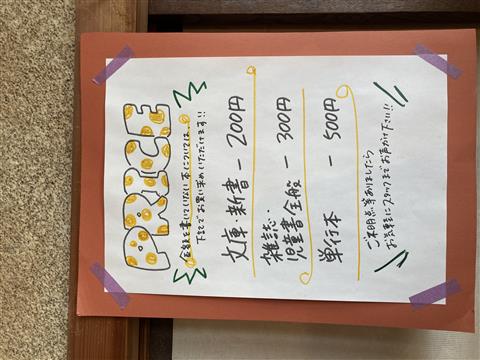 PRICE
金額を書いていない本については、
下記でお買い求めいただけます!!
文庫・新書 - 200円
雑誌・
児童書全般 - 300円
単行本 - 500円
ご不明点等ありましたら
お気軽にスタッフまでお声がけ下さい!!